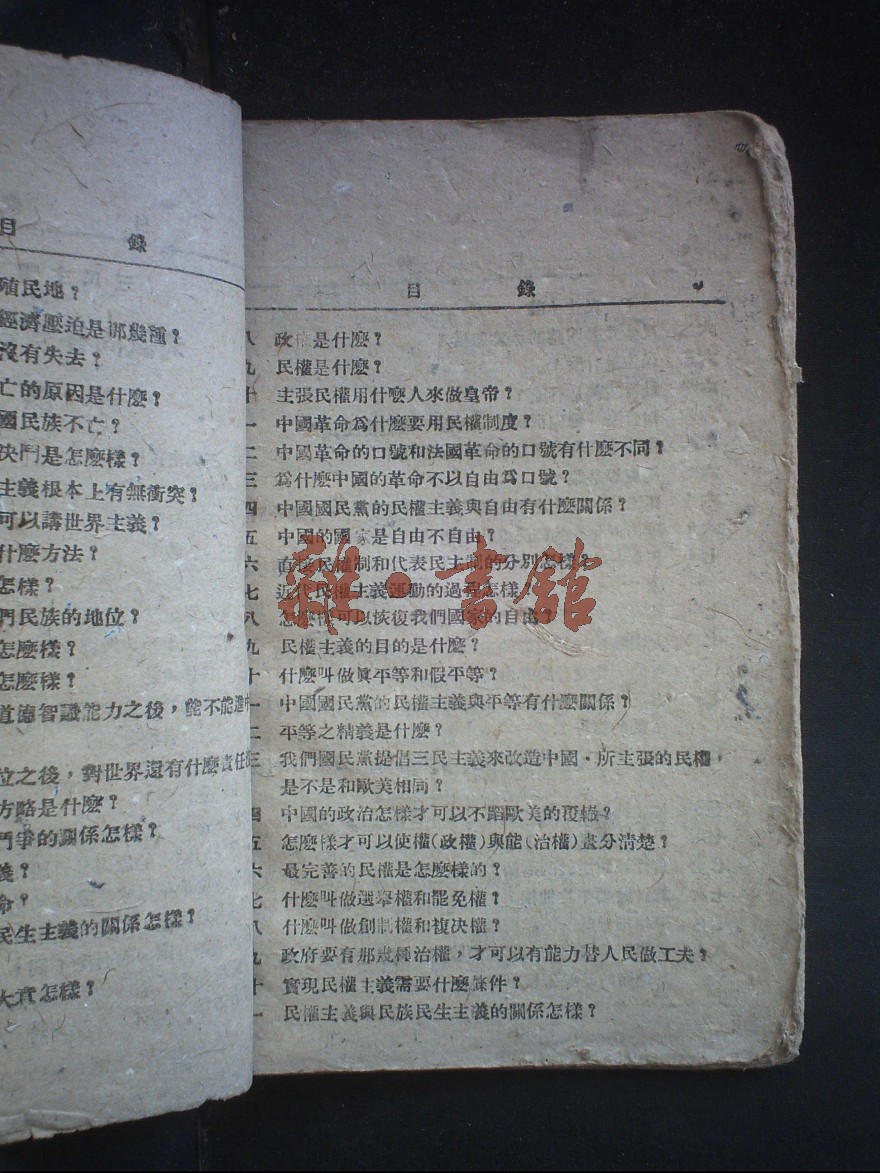 目 錄
殖民地？
經濟壓迫是那幾種？
沒有失去？
亡的原因是什麽？
國民族不亡？
決鬥是怎麽樣？
主義根本上有無衝突？
可以講世界主義？
什麽方法？
怎樣？
們民族的地位？
怎麽樣？
怎麽樣？
道德智識能力之後，能不能進
位之後，對世界還有什麽責任
方略是什麽？
鬥爭的關係怎樣？
義？
命？
民生主義的關係怎樣？
大意怎樣？
目 錄
八 政權是什麽？
九 民權是什麽？
十 主張民權用什麽人來做皇帝？
一 中國革命爲什麽要用民權制度？
二 中國革命的口號和法國革命的口號有什麽不同？
三 爲什麽中國的革命不以自由爲口號？
四 中國國民黨的民權主義與自由有什麽關係？
五 中國的國家是自由不自由？
六 直接民權制和代表民主制的分別怎樣？
七 近代民權主義運動的過程怎樣
八 怎麽樣可以恢復我們國家的自由？
九 民權主義的目的是什麽？
十 什麽叫做眞平等和假平等？
一 中國國民黨的民權主義與平等有什麽關係？
二 平等之精義是什麽？
三 我們國民黨提倡三民主義來改造中國，所主張的民權，
是不是和歐美相同？
四 中國的政治怎樣才可以不蹈歐美的覆轍？
五 怎麽樣才可以使權（政權）與能（治權）畫分清楚？
六 最完善的民權是怎麽樣的？
七 什麽叫做選舉權和罷免權？
八 什麽叫做創制權和複決權？
九 政府要有那幾種治權，才可以有能力替人民做工夫？
十 實現民權主義需要什麽條件？
一 民權主義與民族民生主義的關係怎樣？
雜·書館